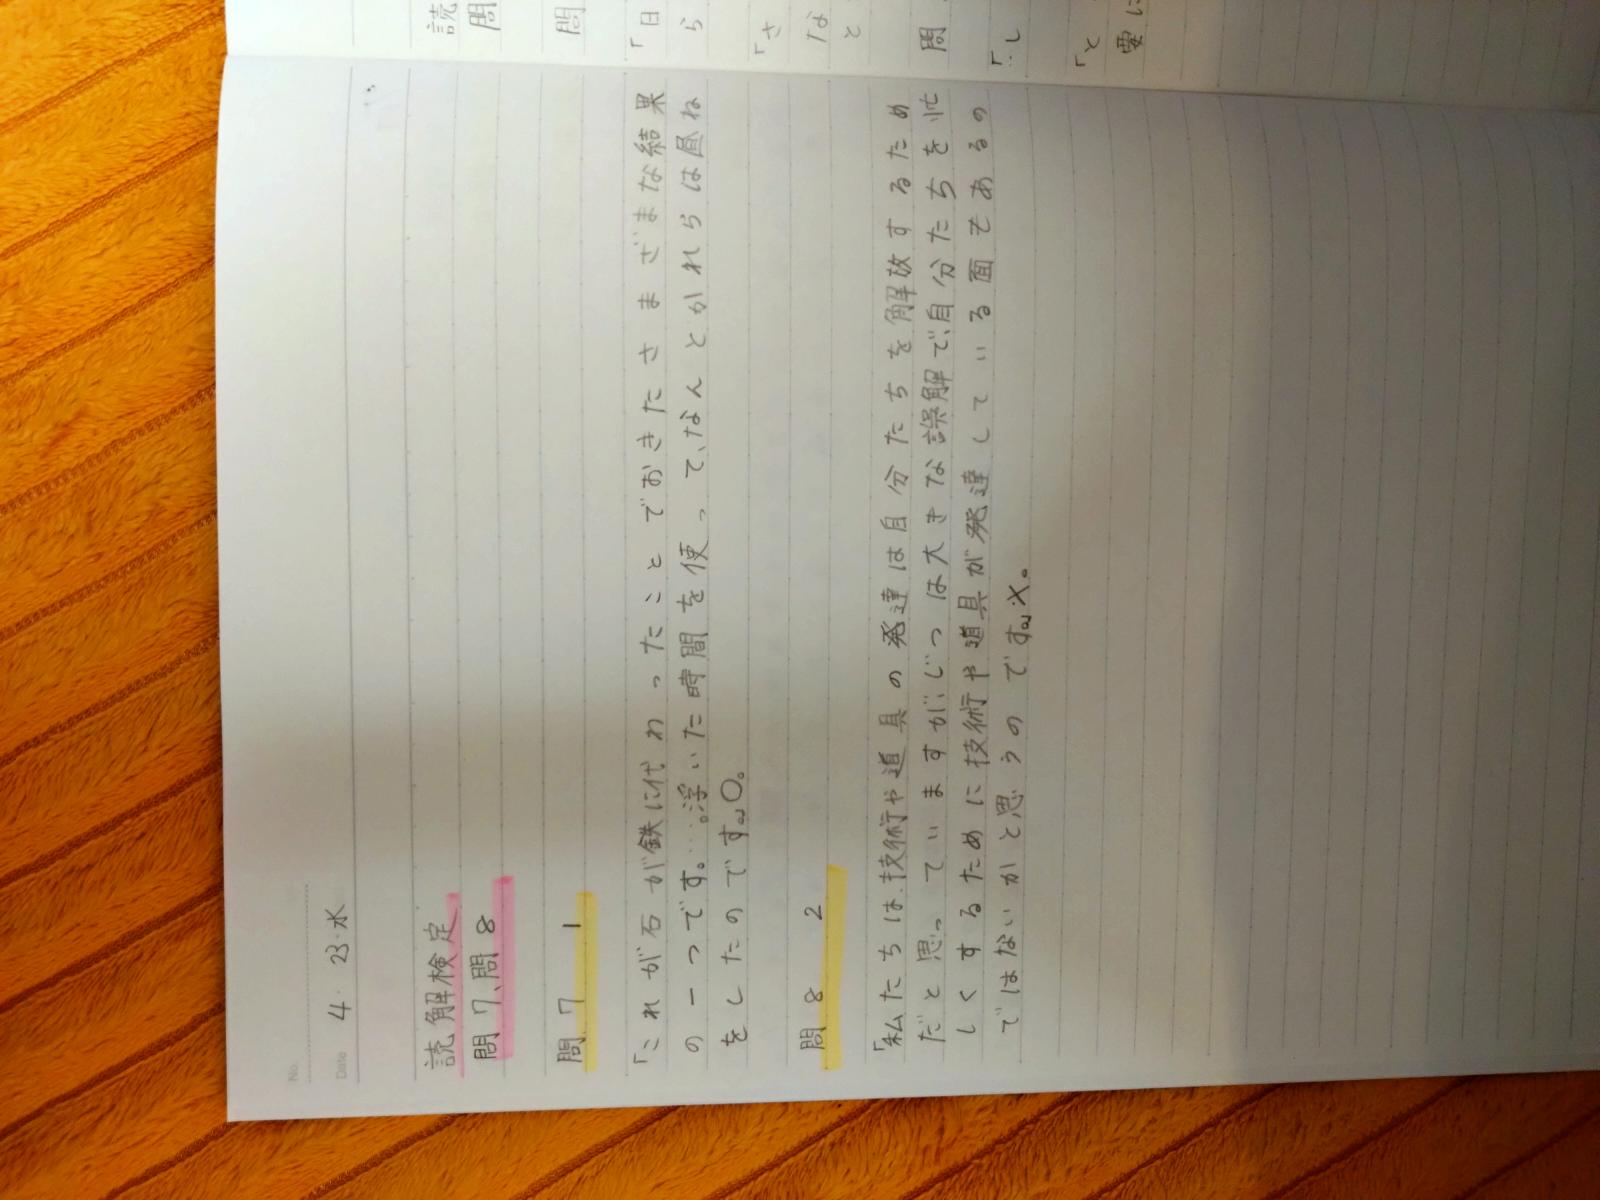 No.
Date 4・23・水
読解検定
問7、問8
問7 1
「これが石が鉄に代わったことでおきたさまざまな結果
の一つです。…。浮いた時間を使って、なんとかれらは昼ね
をしたのです。」○。
問8 2
「私たちは、技術や道具の発達は自分たちを解放するため
だと思っていますが、じつは大きな誤解で、自分たちを忙
しくするために技術や道具が発達している面もあるの
ではないかと思うのです。」×。
読
問
問
「日
ら
「さ
な
と
問
「と
要に